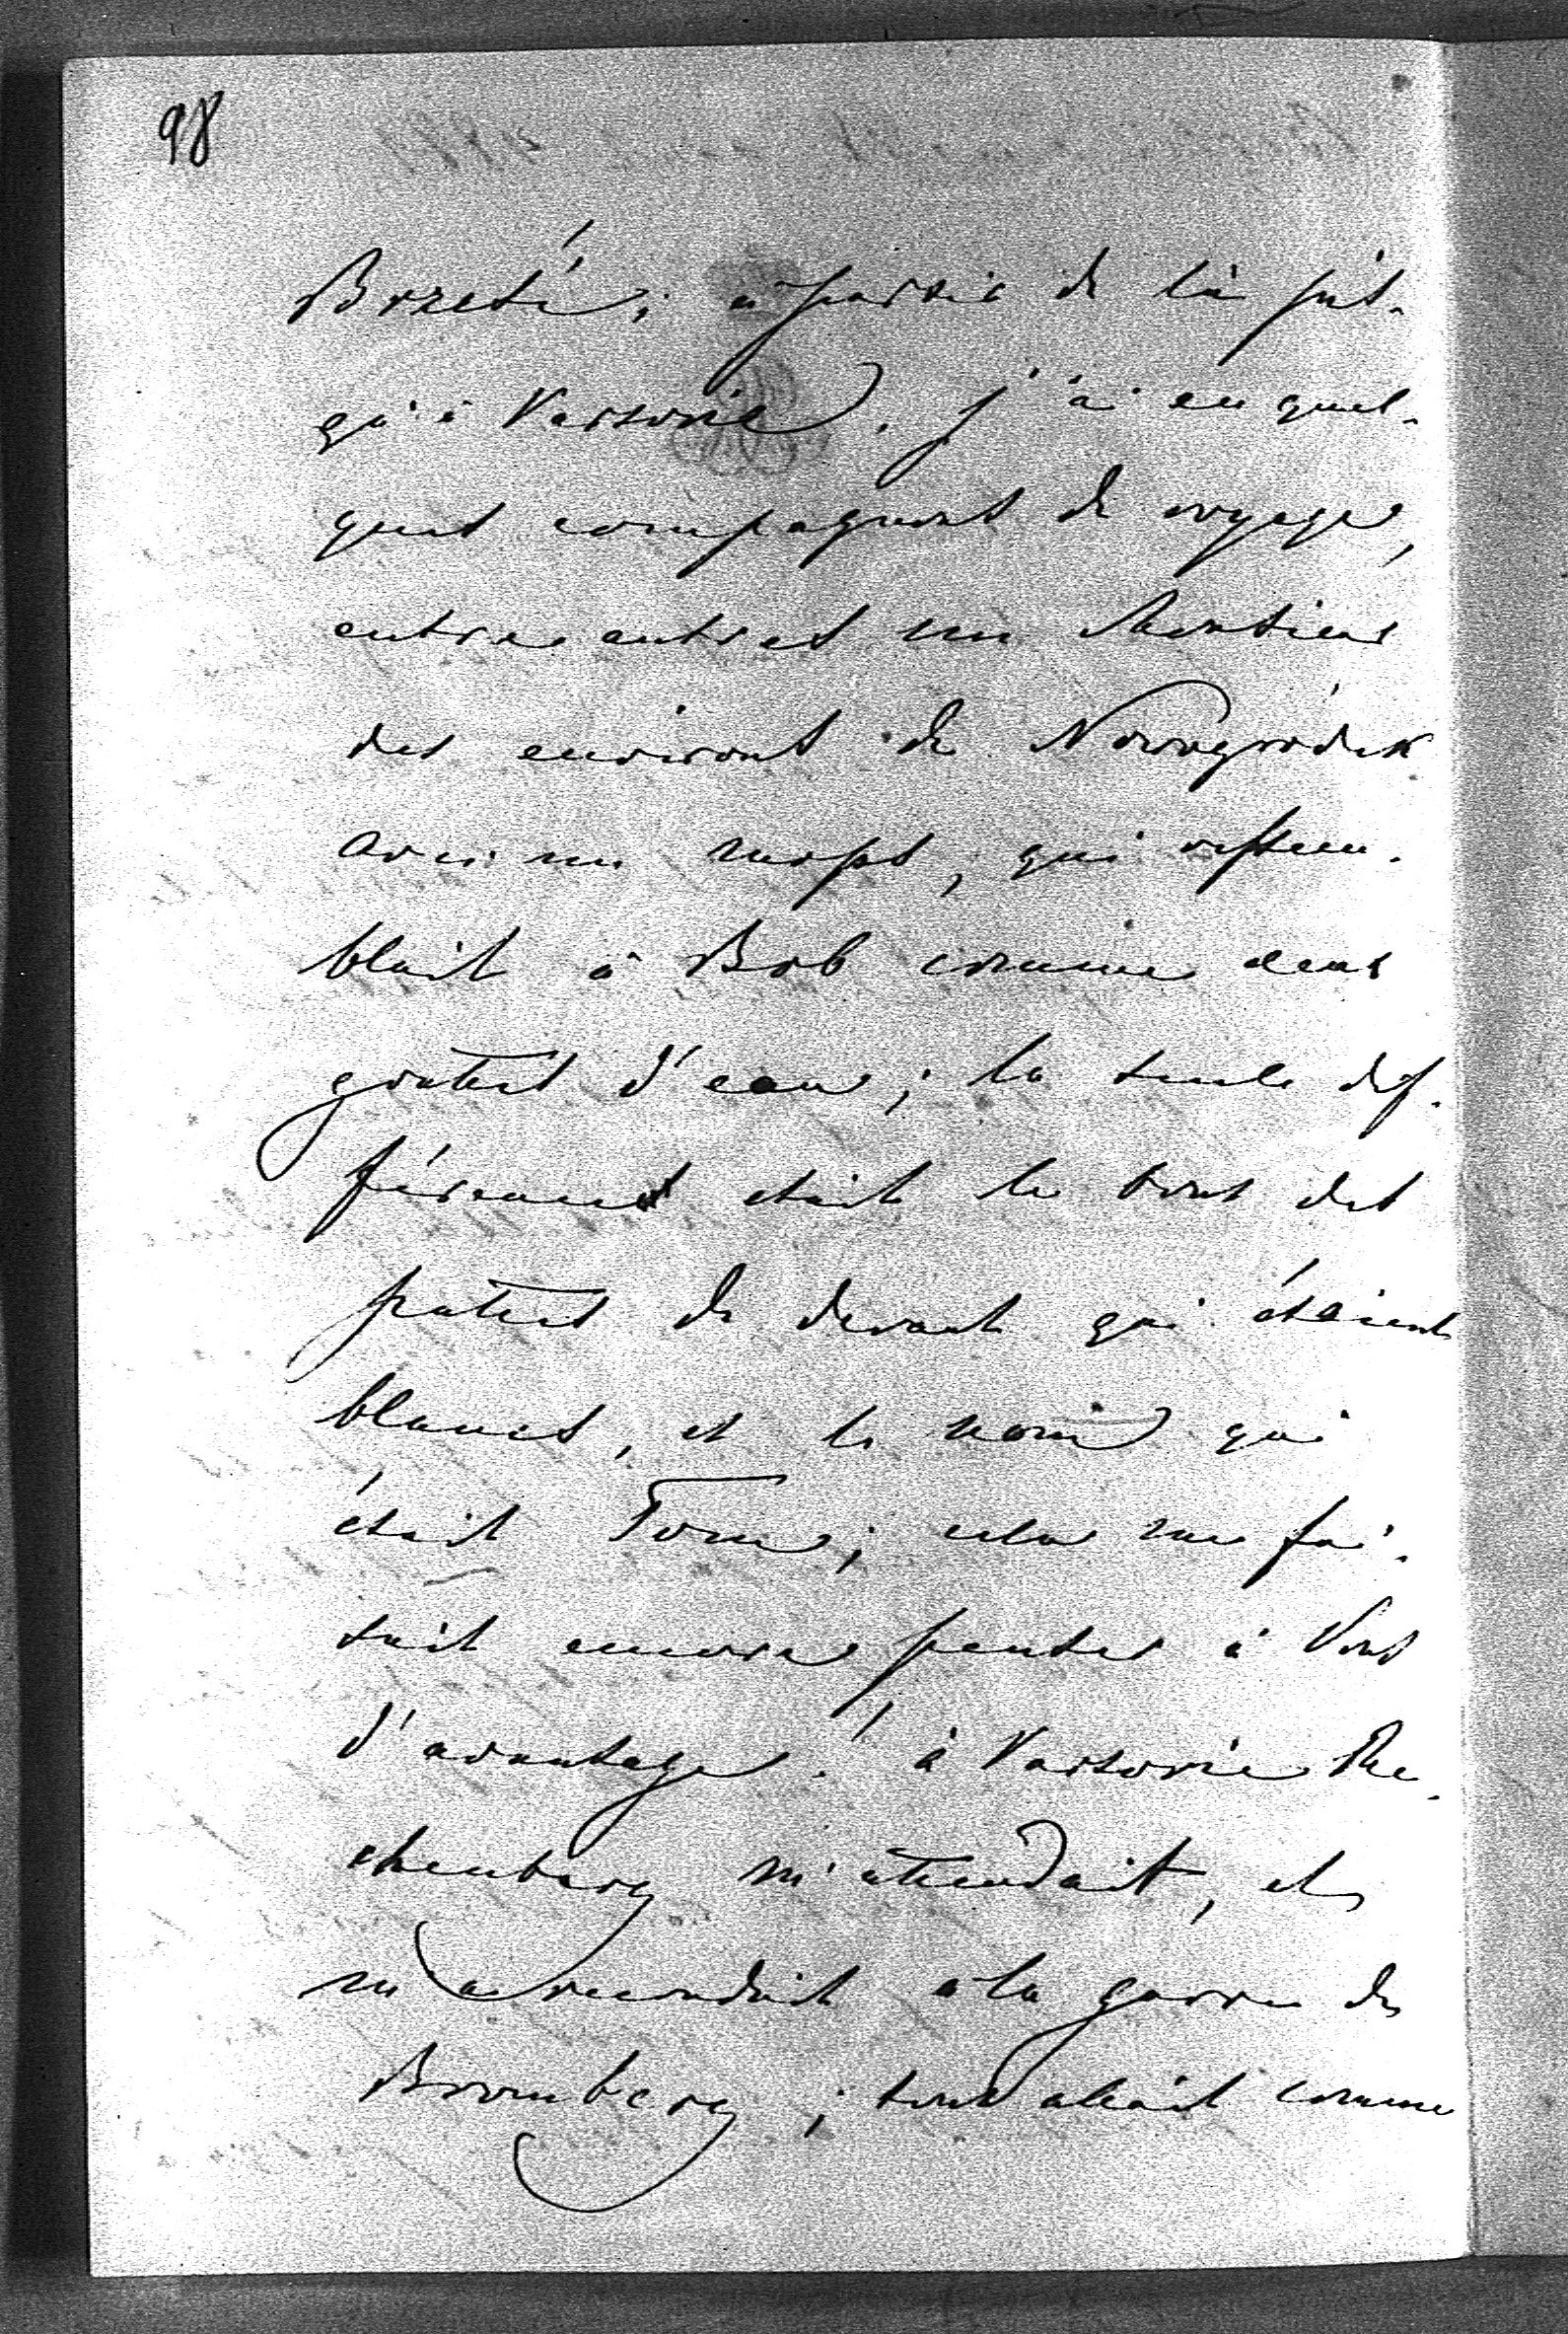 98
Brześć; à partir de là jus-
qu'à Varsovie. j'ai eu quel-
ques compagnons de voyage,
entre autres un Monsieur
des environs de Nowogródek
avec un mops, qui ressem-
blait à Bob comme deux
gouttes d'eau; la seule dif-
férence était le bout des
pattes de devant qui étaient
blancs, et le nom qui
était Tom; cela me fai-
sait encore penser à Vous
d'avantage. à Varsovie Re-
chenberg m'attendait, et
m'a reconduit à la garre de
Bromberg; tout allait comme